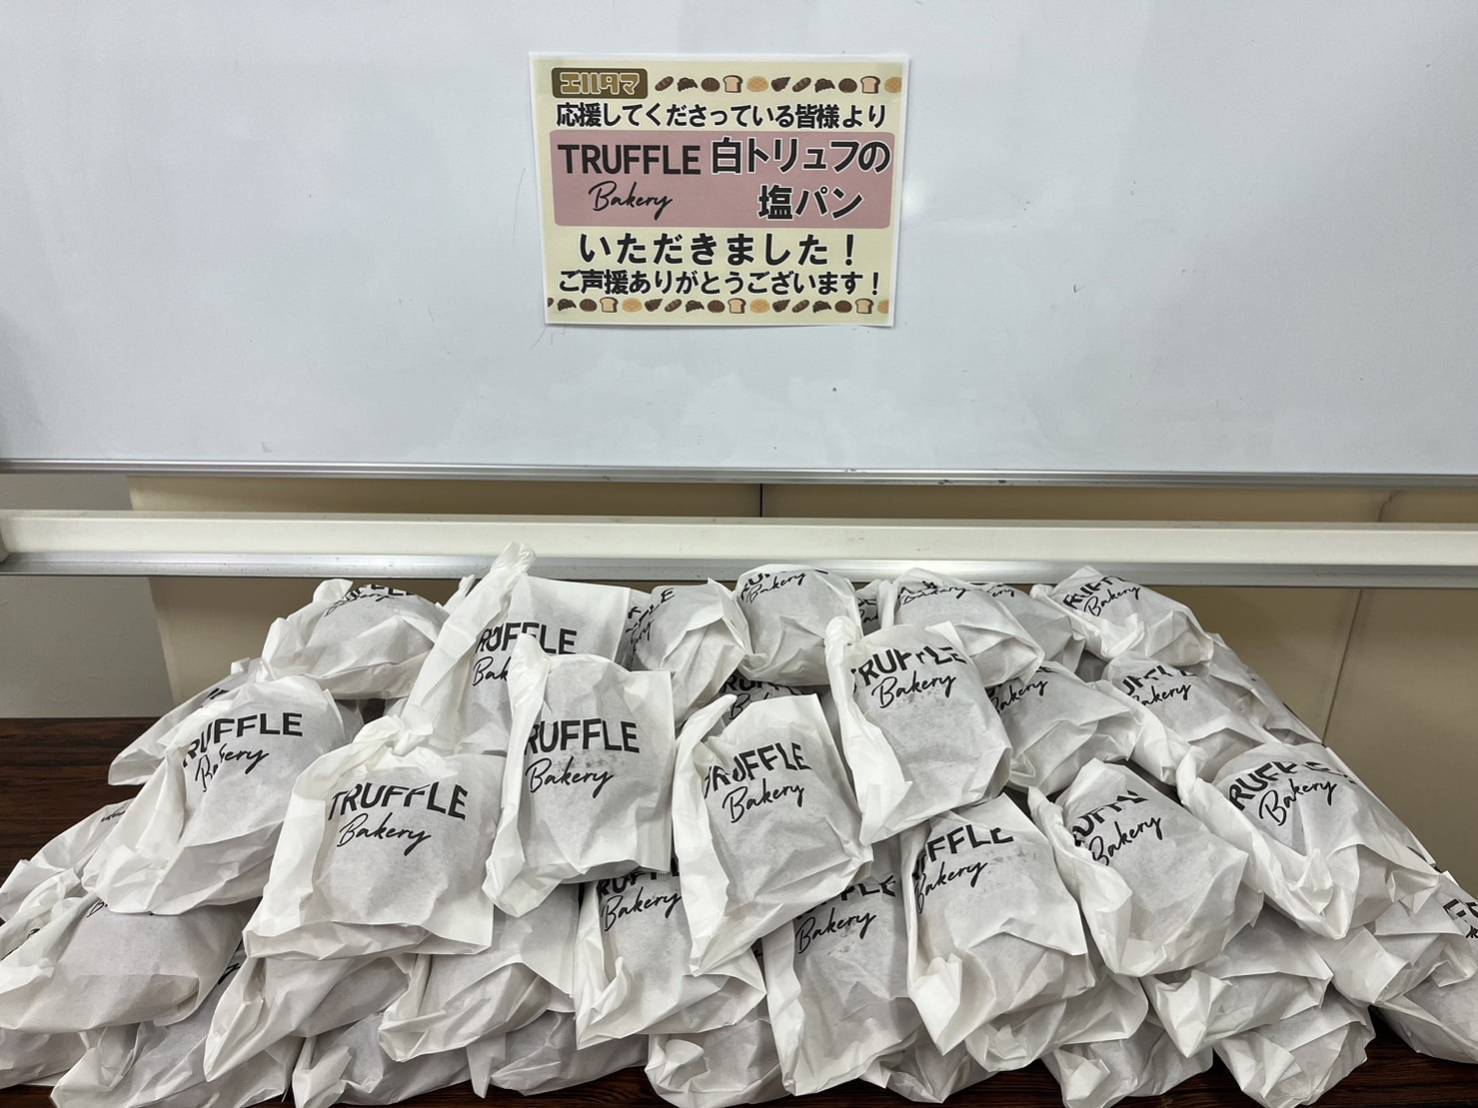 エハタマ
応援してくださっている皆様より
TRUFFLE 白トリュフの
Bakery 塩パン
いただきました！
ご声援ありがとうございます！
TRUFFLE
Bakery
TRUFFLE
Bakery
TRUFFLE
Bakery
TRUFFLE
Bakery
TRUFFLE
Bakery
TRUFFLE
Bakery